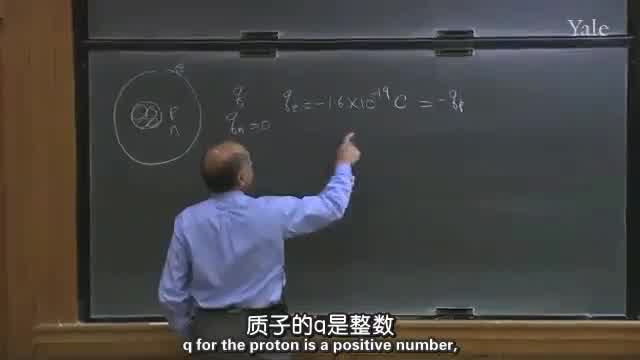 Yale
e
q
q_e = -1.6×10^-19 C = -q_p
P
n
q_n = 0
质子的q是整数
q for the proton is a positive number,